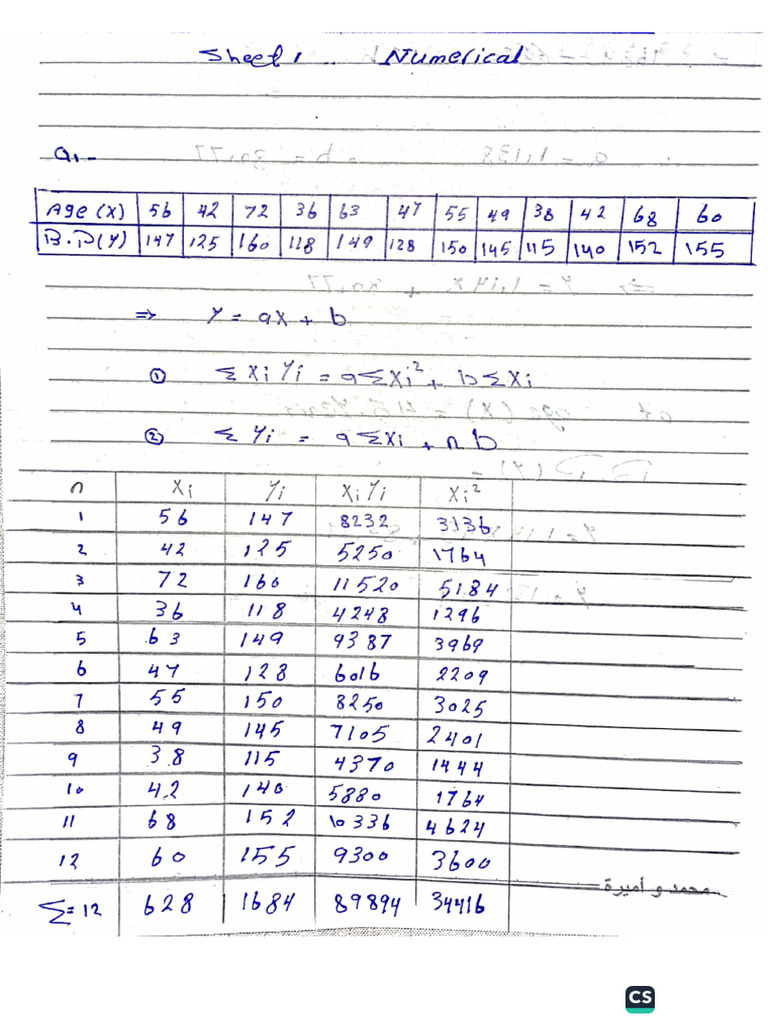 Sheet 1 .. Numerical
Q1 -
Age (X) 56 42 72 36 63 47 55 49 38 42 68 60
B.P(Y) 147 125 160 118 149 128 150 145 115 140 152 155
⇒ Y = ax + b
① Σ Xi Yi = a Σ Xi² + b Σ Xi
② Σ Yi = a Σ Xi + n b
n Xi Yi XiYi Xi²
1 56 147 8232 3136
2 42 125 5250 1764
3 72 160 11520 5184
4 36 118 4248 1296
5 63 149 9387 3969
6 47 128 6016 2209
7 55 150 8250 3025
8 49 145 7105 2401
9 38 115 4370 1444
10 42 140 5880 1764
11 68 152 10336 4624
12 60 155 9300 3600
محمد و أميرة
Σ = 12 628 1684 89894 34416
CS